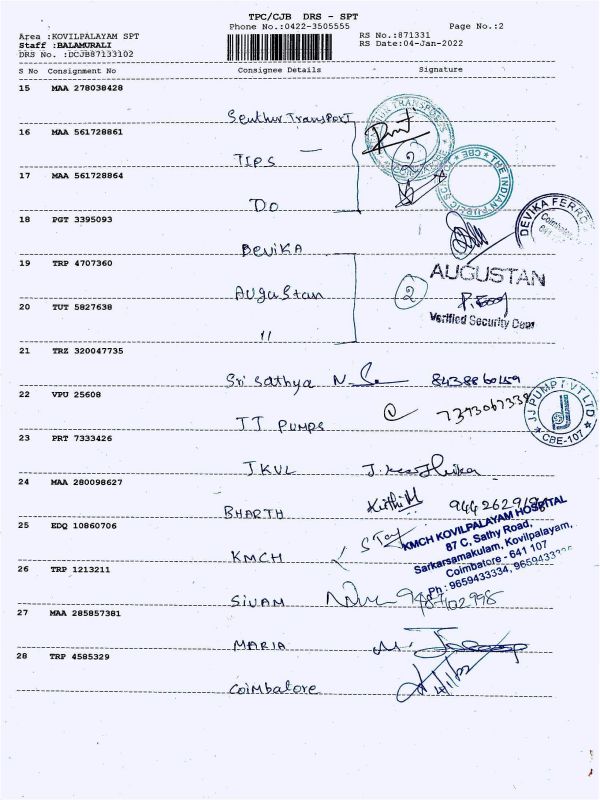 TPC/CJB DRS - SPT
Phone No.:0422-3505555 Page No.:2
Area :KOVILPALAYAM SPT RS No.:871331
Staff :BALAMURALI RS Date:04-Jan-2022
DRS No. :DCJB87133102
S No Consignment No Consignee Details Signature
15 MAA 278038428
Senthur Transport
16 MAA 561728861
TIPS
2
THE INDIAN PUBLIC
CBE
17 MAA 561728864
DO
18 PGT 3395093
DEVIKA FERRO
Coimbatore
641
DEVIKA
19 TRP 4707360
AUGUSTAN
Augustan
2
20 TUT 5827638
Verified Security Dept
"
21 TRZ 320047735
Sri Sathya 8438860159
22 VPU 25608
JJ PUMPS 7373067338
JJ PUMP PVT LTD
CBE-107
23 PRT 7333426
JKVL
24 MAA 280098627
BHARTH
25 EDQ 10860706
KMCH
KMCH KOVILPALAYAM HOSPITAL
87 C, Sathy Road,
Sarkarsamakulam, Kovilpalayam,
Coimbatore - 641 107
Ph : 9659433334, 9659433335
26 TRP 1213211
SIVAM
27 MAA 285857381
MARIA
28 TRP 4585329
Coimbatore